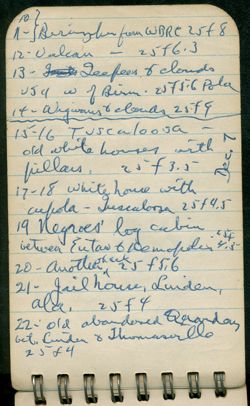 10}
11-}Birmingham from WBRC 25 f 8
12- Vulcan - 25 f 6.3
13 - Teepees & clouds
w of Birm. 25 f 5.6 Pola
14 - & clouds 25 f 9
15-16 Tuscaloosa -
old white houses with
pillars, 25 f 3.5 -
Dec. 7
17-18 White house with
cupola - Tuscaloosa 25 f 4.5
19 Negroes' log cabin
between Eutaw & Demopolis 25 f 4.5
20 - Another 25 f 5.6
21 - Jail house, Linden,
Ala. 25 f 4
22 - old abandoned
bet. Linden & Thomasville
25 f 4